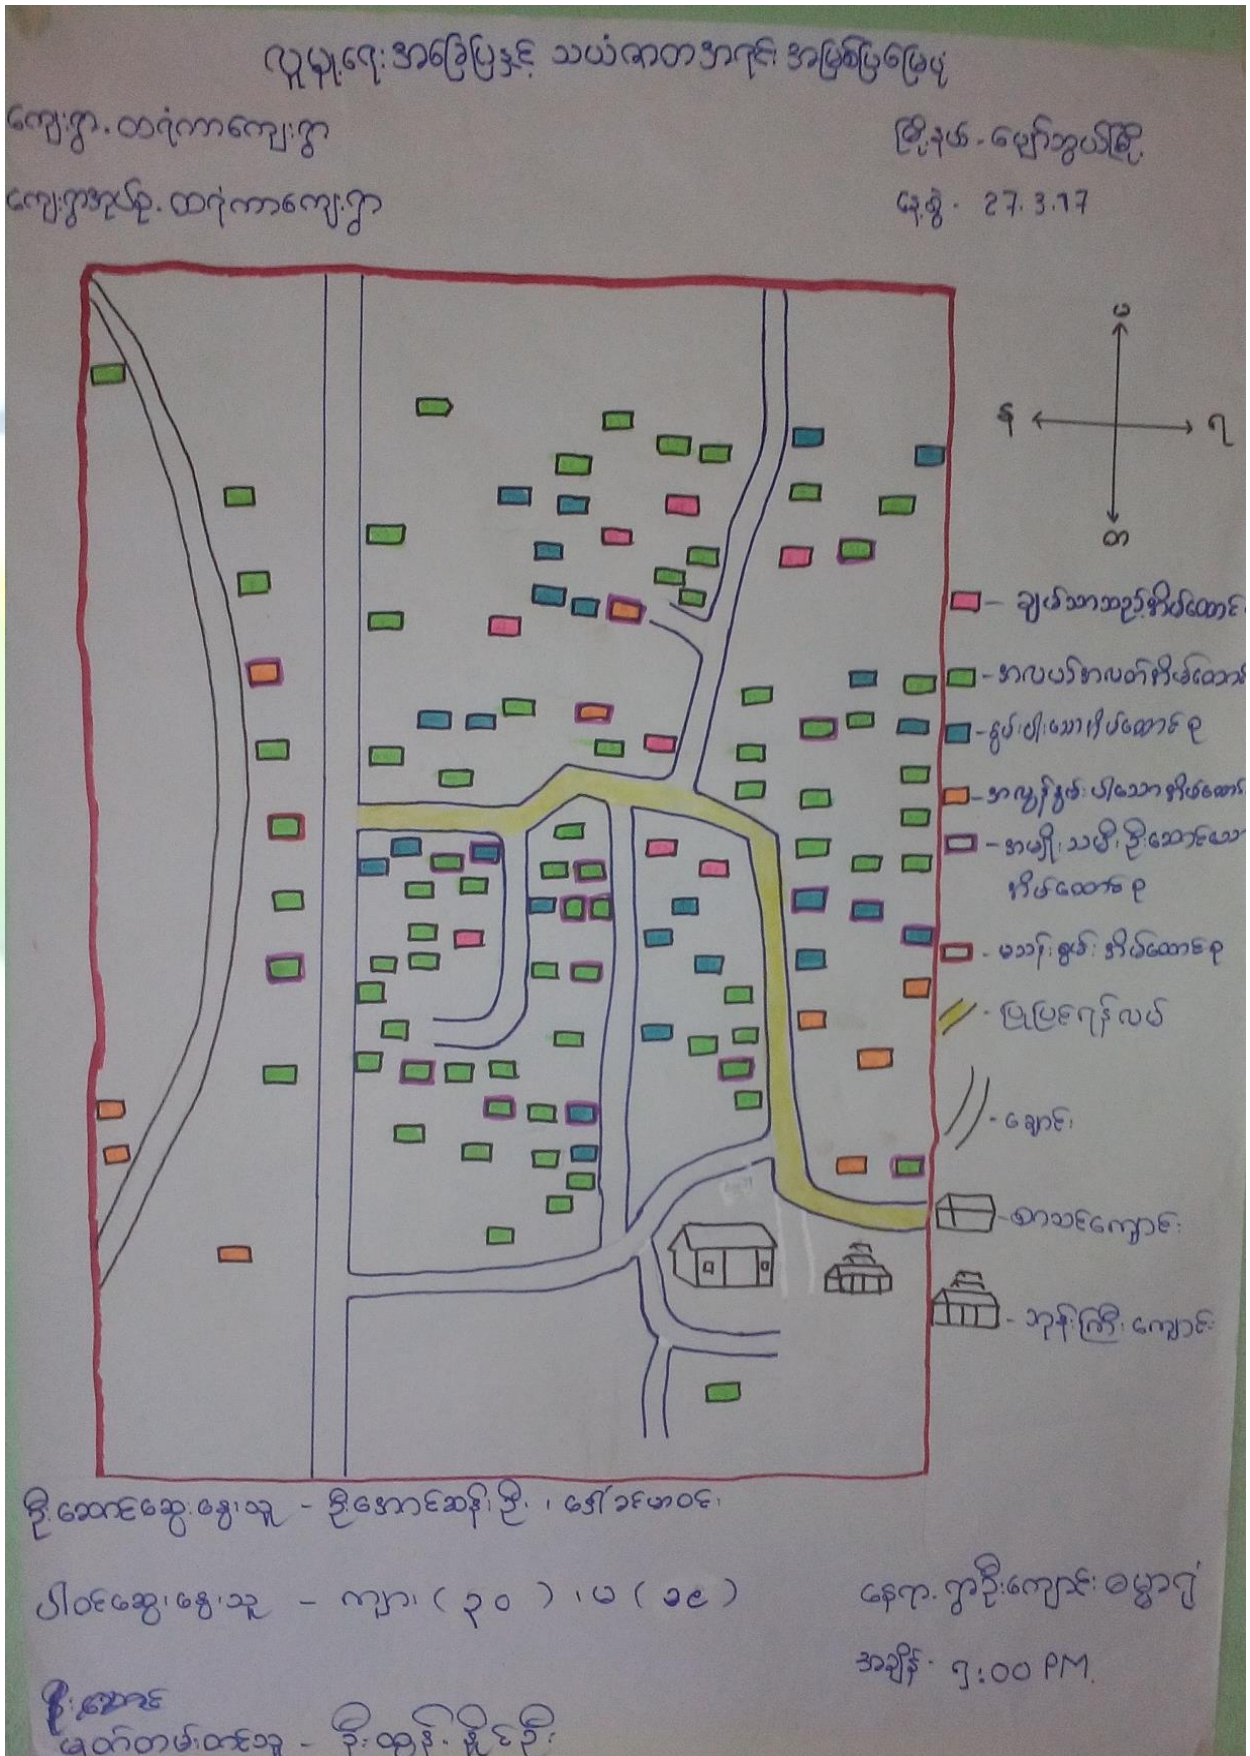 လူမှုရေးအခြေပြနှင့် သယံဇာတအရင်းအမြစ်ပြမြေပုံ
ကျေးရွာ. ထရံကာကျေးရွာ
မြို့နယ် - ပျော်ဘွယ်မြို့
ကျေးရွာအုပ်စု. ထရံကာကျေးရွာ
နေ့စွဲ - 27.3.17
မ
န
ရ
တ
- ချမ်းသာသည့်အိမ်ထောင်
- အလယ်အလတ်အိမ်ထောင်
- နွမ်းပါးသောအိမ်ထောင်စု
- အလွန်နွမ်းပါးသောအိမ်ထောင်
- အမျိုးသမီးဦးဆောင်သော
အိမ်ထောင်စု
- မသန်စွမ်းအိမ်ထောင်စု
- ပြုပြင်ရန်လမ်း
- ချောင်း
- စာသင်ကျောင်း
- ဘုန်းကြီးကျောင်း
ဦးဆောင်ဆွေးနွေးသူ - ဦးအောင်ဆန်းဦး ၊ ဒေါ်ခင်မာဝင်း
ပါဝင်ဆွေးနွေးသူ - ကျား (၃၀) ၊ မ (၁၉)
နေရာ. ရွာဦးကျောင်း ဓမ္မာရုံ
အချိန် - ၇:၀၀ PM.
မှတ်တမ်းတင်သူ - ဦးထွန်းနိုင်ဦး